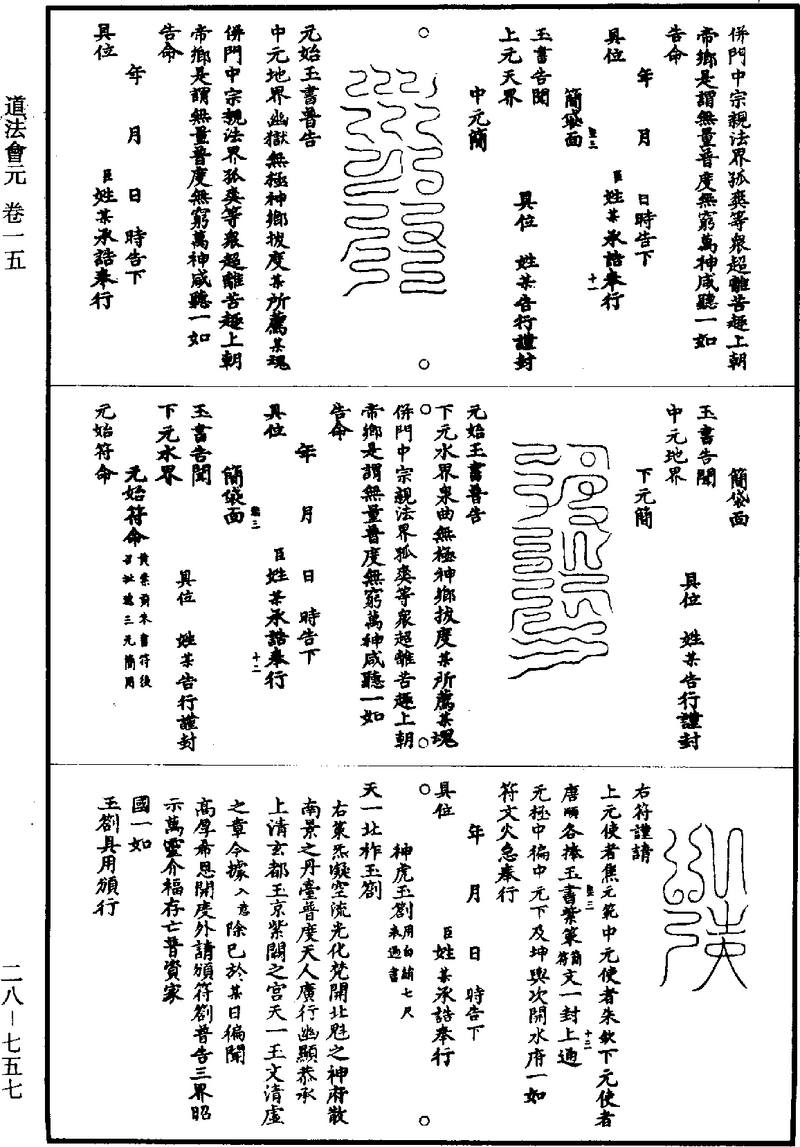 併門中宗親法界孤爽等衆超離苦趣上朝
帝鄉是謂無量普度無窮萬神咸聽一如
告命
年 月 日時告下
具位 臣姓某承誥奉行
簡袋面
玉書告聞
上元天界
具位 姓某告行謹封
中元簡
元始玉書普告
中元地界幽獄無極神鄉拔度某所薦某魂
併門中宗親法界孤爽等衆超離苦趣上朝
帝鄉是謂無量普度無窮萬神咸聽一如
告命
年 月 日 時告下
具位 臣姓某承誥奉行
簡袋面
玉書告聞
中元地界
具位 姓某告行謹封
下元簡
元始玉書普告
下元水界泉曲無極神鄉拔度某所薦某魂
併門中宗親法界孤爽等衆超離苦趣上朝
帝鄉是謂無量普度無窮萬神咸聽一如
告命
年 月 日 時告下
具位 臣姓某承誥奉行
簡袋面
玉書告聞
下元水界
具位 姓某告行謹封
元始符命
元始符命
右符謹請
上元使者焦元範中元使者朱欽下元使者
唐 各捧玉書紫策簡符文一封上通
元極中徧中元下及坤輿次開水府一如
符文火急奉行
年 月 日 時告下
具位 臣姓某承誥奉行
神虎玉劄用白絹七尺
天一北柞玉劄
右策炁凝空流光化梵開北魁之神府散
南景之丹臺普度天人廣行幽顯恭承
上清玄都玉京紫闕之宮天一玉文清虛
之章今據入意除已於某日徧聞
高厚希恩開度外請頒符劄普告三界昭
示萬靈介福存亡普資家
國一如
玉劄具用頒行
道法會元 卷一五
二八－七五七